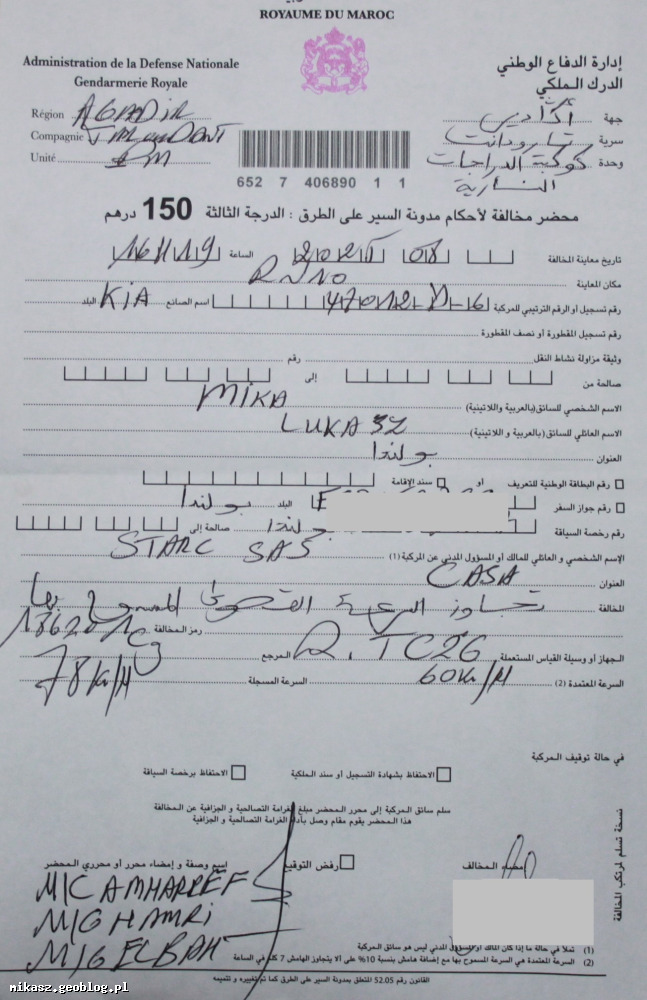 ROYAUME DU MAROC
Administration de la Defense Nationale
Gendarmerie Royale
إدارة الدفاع الوطني
الدرك الملكي
Région AGADIR
Compagnie
Unité
جهة أكادير
سرية تارودانت
وحدة كوكبة الدراجات
النارية
652 7 406890 1 1
محضر مخالفة لأحكام مدونة السير على الطرق : الدرجة الثالثة 150 درهم
تاريخ معاينة المخالفة الساعة
مكان المعاينة
رقم تسجيل أو الرقم الترتيبي للمركبة اسم الصانع KIA البلد
رقم تسجيل المقطورة أو نصف المقطورة
وثيقة مزاولة نشاط النقل رقم
صالحة من إلى
الاسم الشخصي للسائق (بالعربية واللاتينية) MIKA
الاسم العائلي للسائق (بالعربية و اللاتينية) LUKASZ
العنوان بولندا
رقم البطاقة الوطنية للتعريف أو سند الإقامة
رقم جواز السفر البلد بولندا
رقم رخصة السياقة بولندا صالحة إلى
الإسم الشخصي و العائلي للمالك أو المسؤول المدني عن المركبة (1) STARC SAS
العنوان CASA
المخالفة تجاوز السرعة القصوى المسموح بها
رمز المخالفة
الجهاز أو وسيلة القياس المستعملة R.TC26 المرجع
السرعة المعتمدة (2) 60Km/H السرعة المسجلة 78Km/H
في حالة توقيف المركبة
الاحتفاظ بشهادة التسجيل أو سند الملكية الاحتفاظ برخصة السياقة
سلم سائق المركبة إلى محرر المحضر مبلغ الغرامة التصالحية و الجزافية عن المخالفة
هذا المحضر يقوم مقام وصل بأداء الغرامة التصالحية و الجزافية
المخالف رفض التوقيع اسم وصفة و إمضاء محرر أو محرري المحضر
M/G HAMRI
نسخة تسلم لمرتكب المخالفة
(1) تملأ في حالة ما إذا كان المالك أو المسؤول المدني ليس هو سائق المركبة
(2) السرعة المعتمدة هي السرعة المسموح بها مع إضافة هامش بنسبة 10% على ألا يتجاوز الهامش 7 كلم في الساعة
القانون رقم 52.05 المتعلق بمدونة السير على الطرق كما تم تغييره و تتميمه
mikasz.geoblog.pl